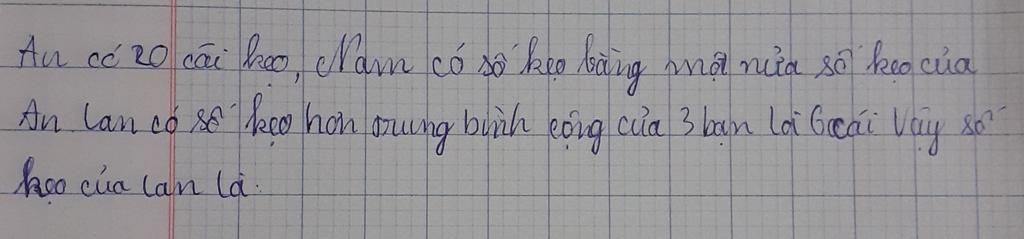 An có 20 cái kẹo, Nam có số kẹo bằng một nửa số kẹo của
An Lan có số kẹo hơn trung bình cộng của 3 bạn là 6 cái Vậy số
kẹo của Lan là.